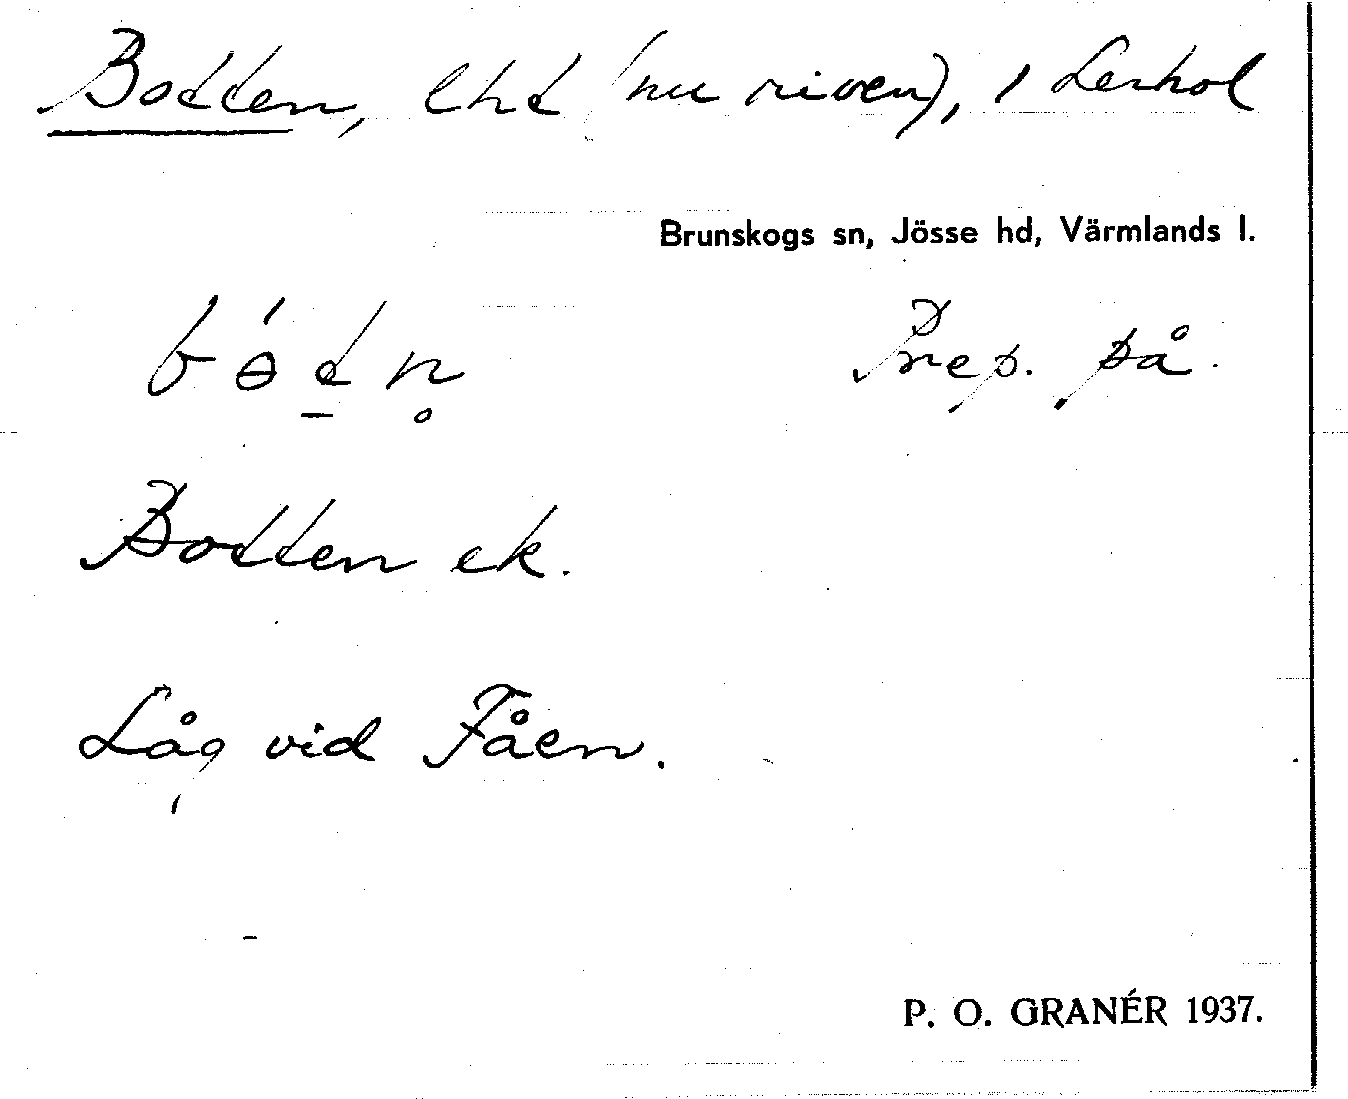 Botten, lht (nu riven), 1 Lerhol
Brunskogs sn, Jösse hd, Värmlands l.
bɵ́t̠n̥ Prep. på.
Botten ek.
Låg vid Fåen.
P. O. GRANÉR 1937.